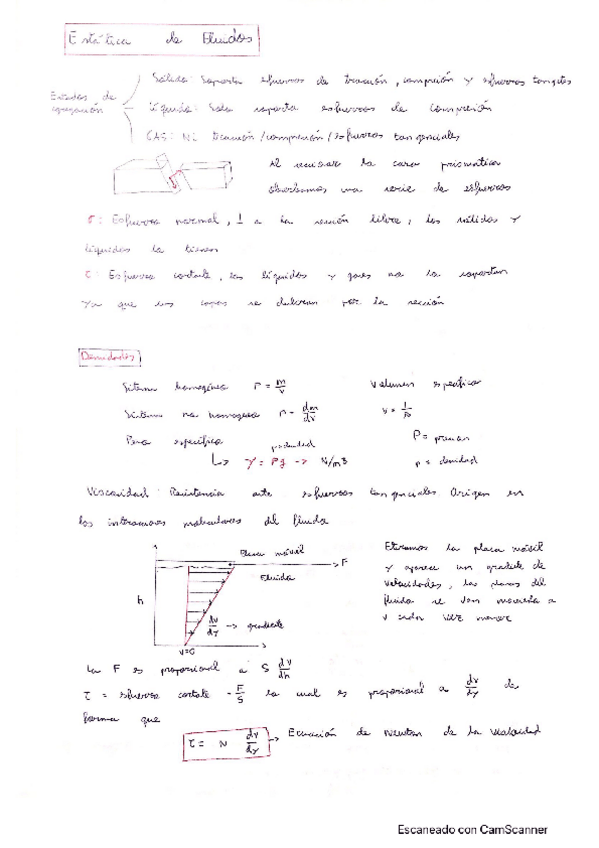 Estática de Fluidos
Sólido: Soporta esfuerzos de tracción, compresión y esfuerzos tangetes
Estados de agregación
Líquido: Solo soporta esfuerzos de compresión
GAS: Ni tracción/compresión/esfuerzos tangenciales
Al seccionar la cara prismática
observamos una serie de esfuerzos
σ: Esfuerzo normal, ⊥ a la sección libre, los sólidos y
líquidos la tienen
τ: Esfuerzo cortante, los líquidos y gases no lo soportan
ya que sus capas se deslizan por la sección
Densidades
Sistema homogéneo ρ = m/v Volumen específico
Sistema no homogéneo ρ = dm/dv v = 1/ρ
Peso específico P = presión
densidad
↳ γ = ρg → N/m3 ρ = densidad
Viscosidad: Resistencia ante esfuerzos tangenciales Origen en
las interacciones moleculares del fluido
Placa móvil F
Fluido
h
dv/dy → gradiente
v=0
Estiramos la placa móvil
y aparece un gradiente de
velocidades, las placas del
fluido se van moviendo a
v cada vez menor
La F es proporcional a S dv/dh
τ = esfuerzo cortante - F/S lo cual es proporcional a dv/dy de
forma que
τ = N dv/dy → Ecuación de Newton de la
Escaneado con CamScanner